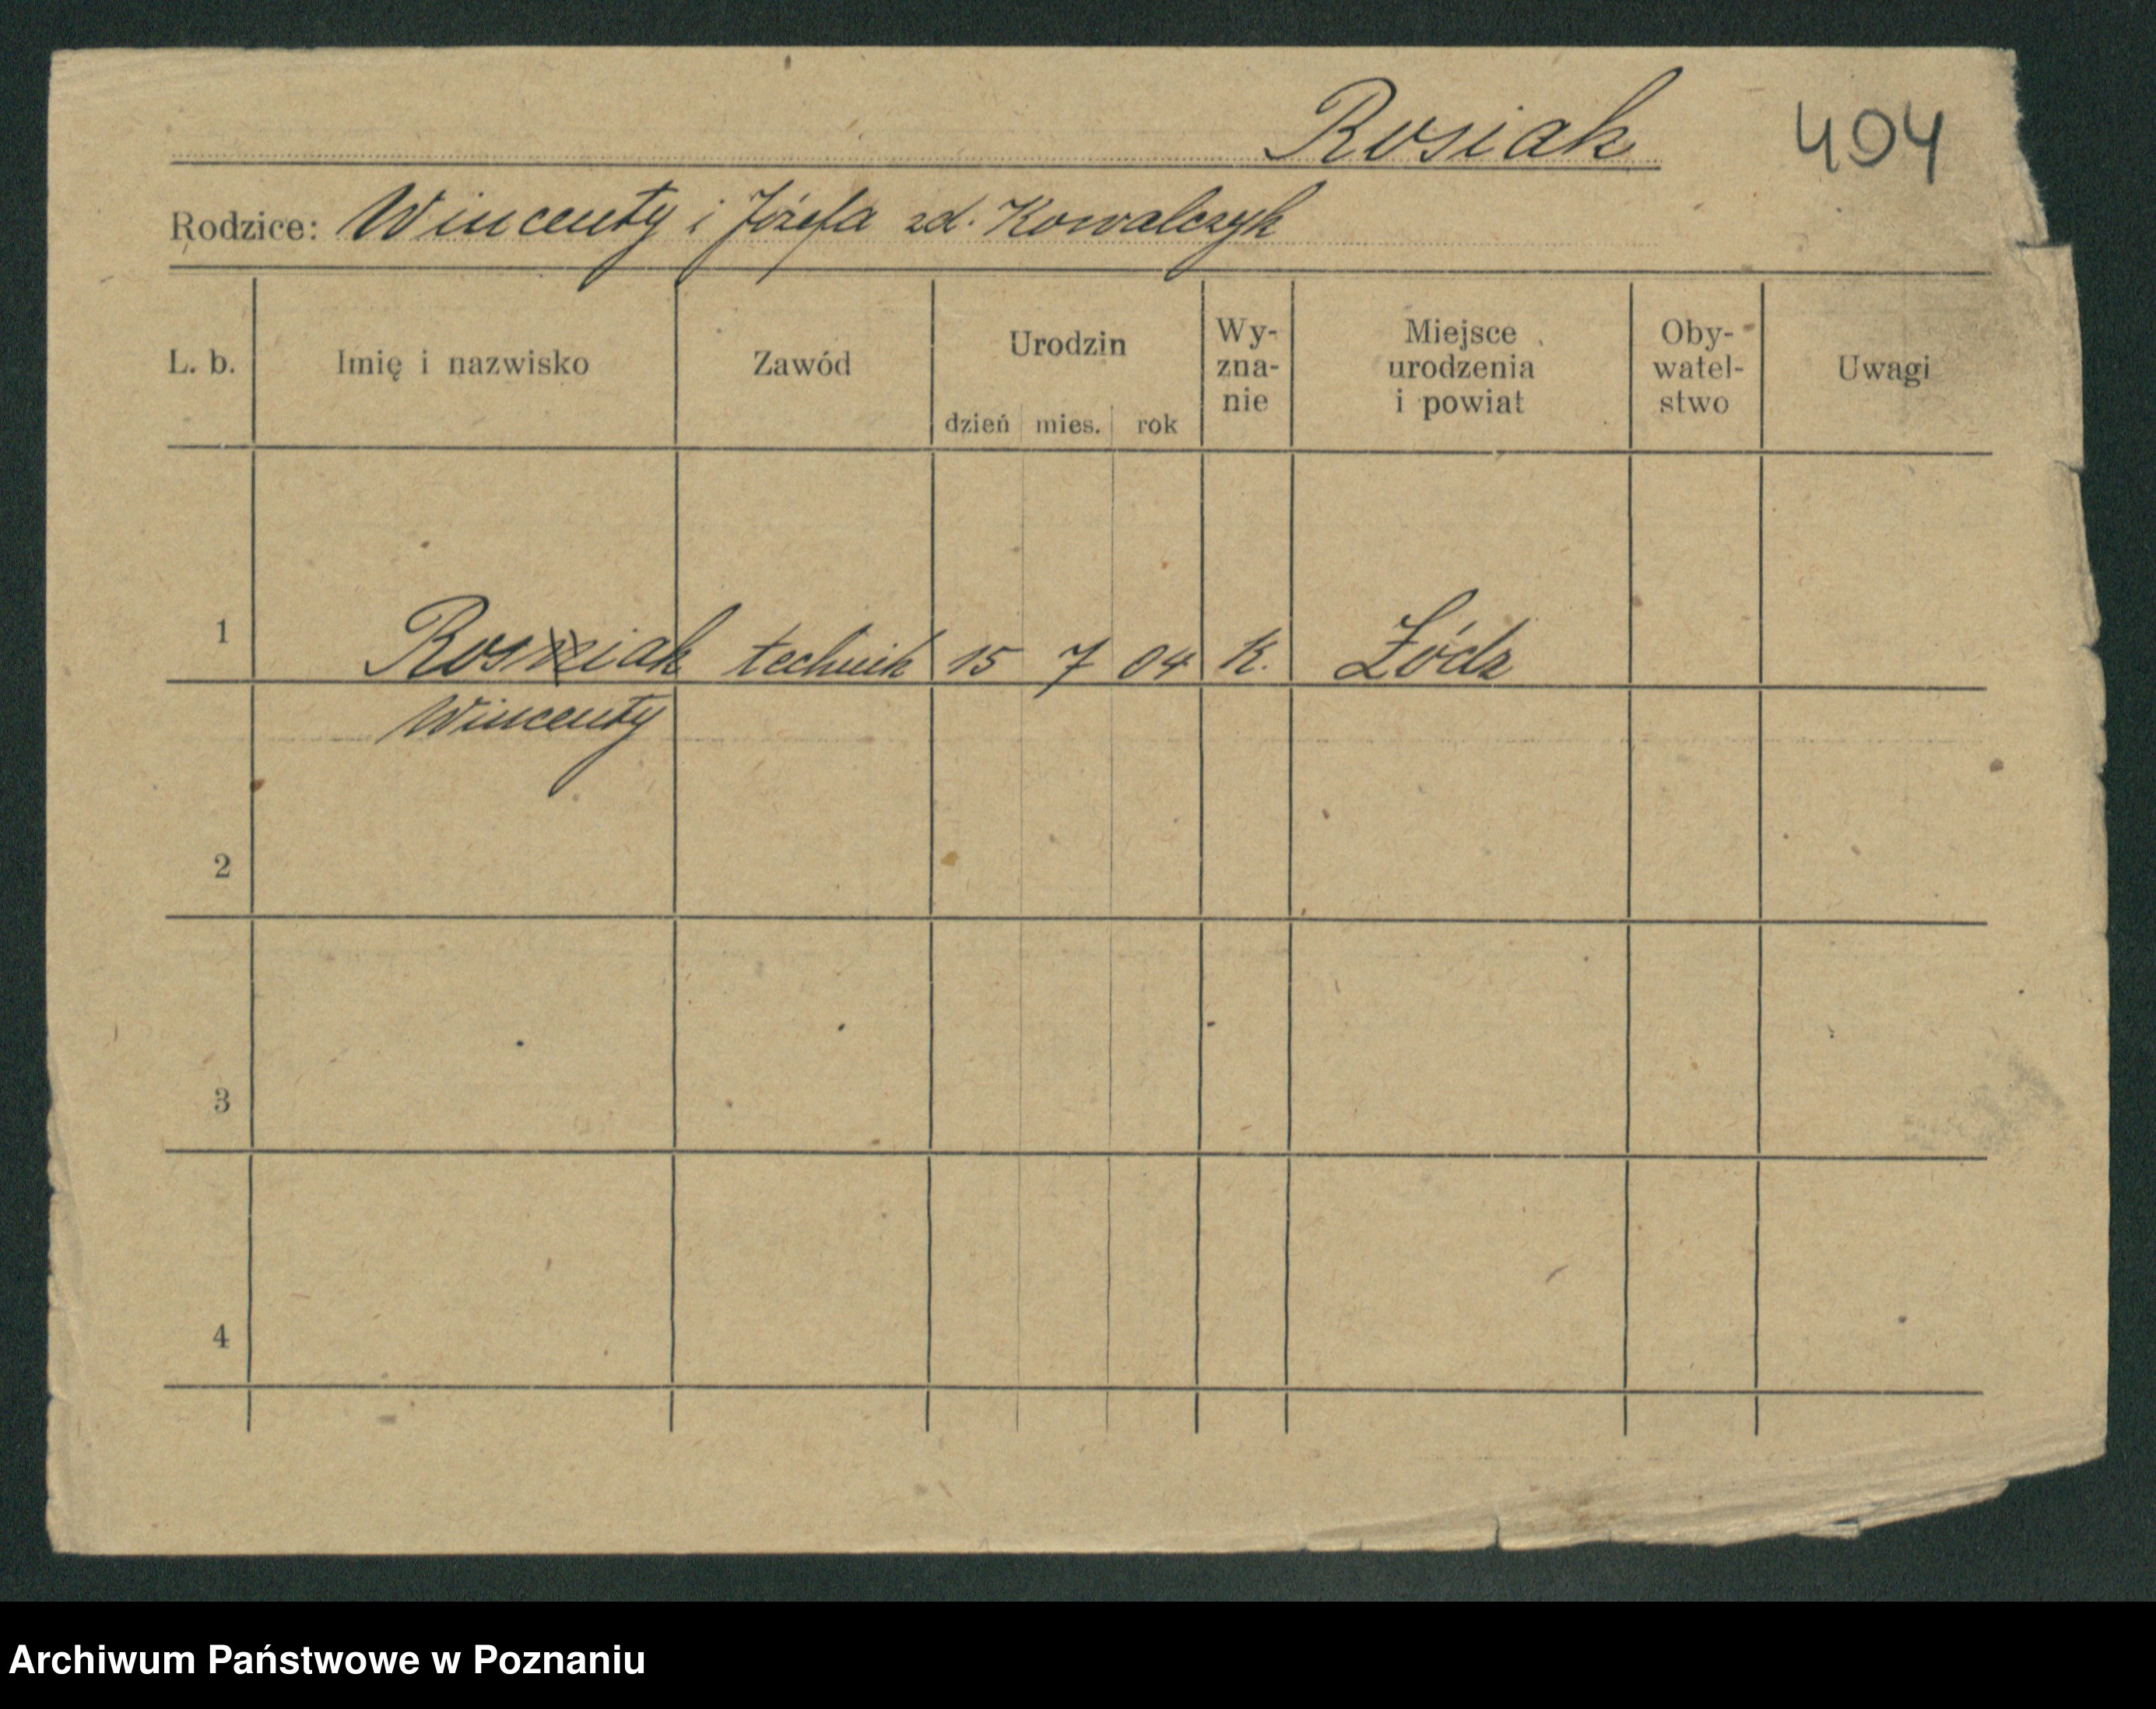 Rosiak 494
Rodzice: Wincenty i Józefa zd. Kowalczyk
L. b. Imię i nazwisko Zawód Urodzin dzień mies. rok Wy-zna-nie Miejsce urodzenia i powiat Oby-watel-stwo Uwagi
1 Rosiak technik 15 7 04 k. Łódz
Wincenty
2
3
4
Archiwum Państwowe w Poznaniu